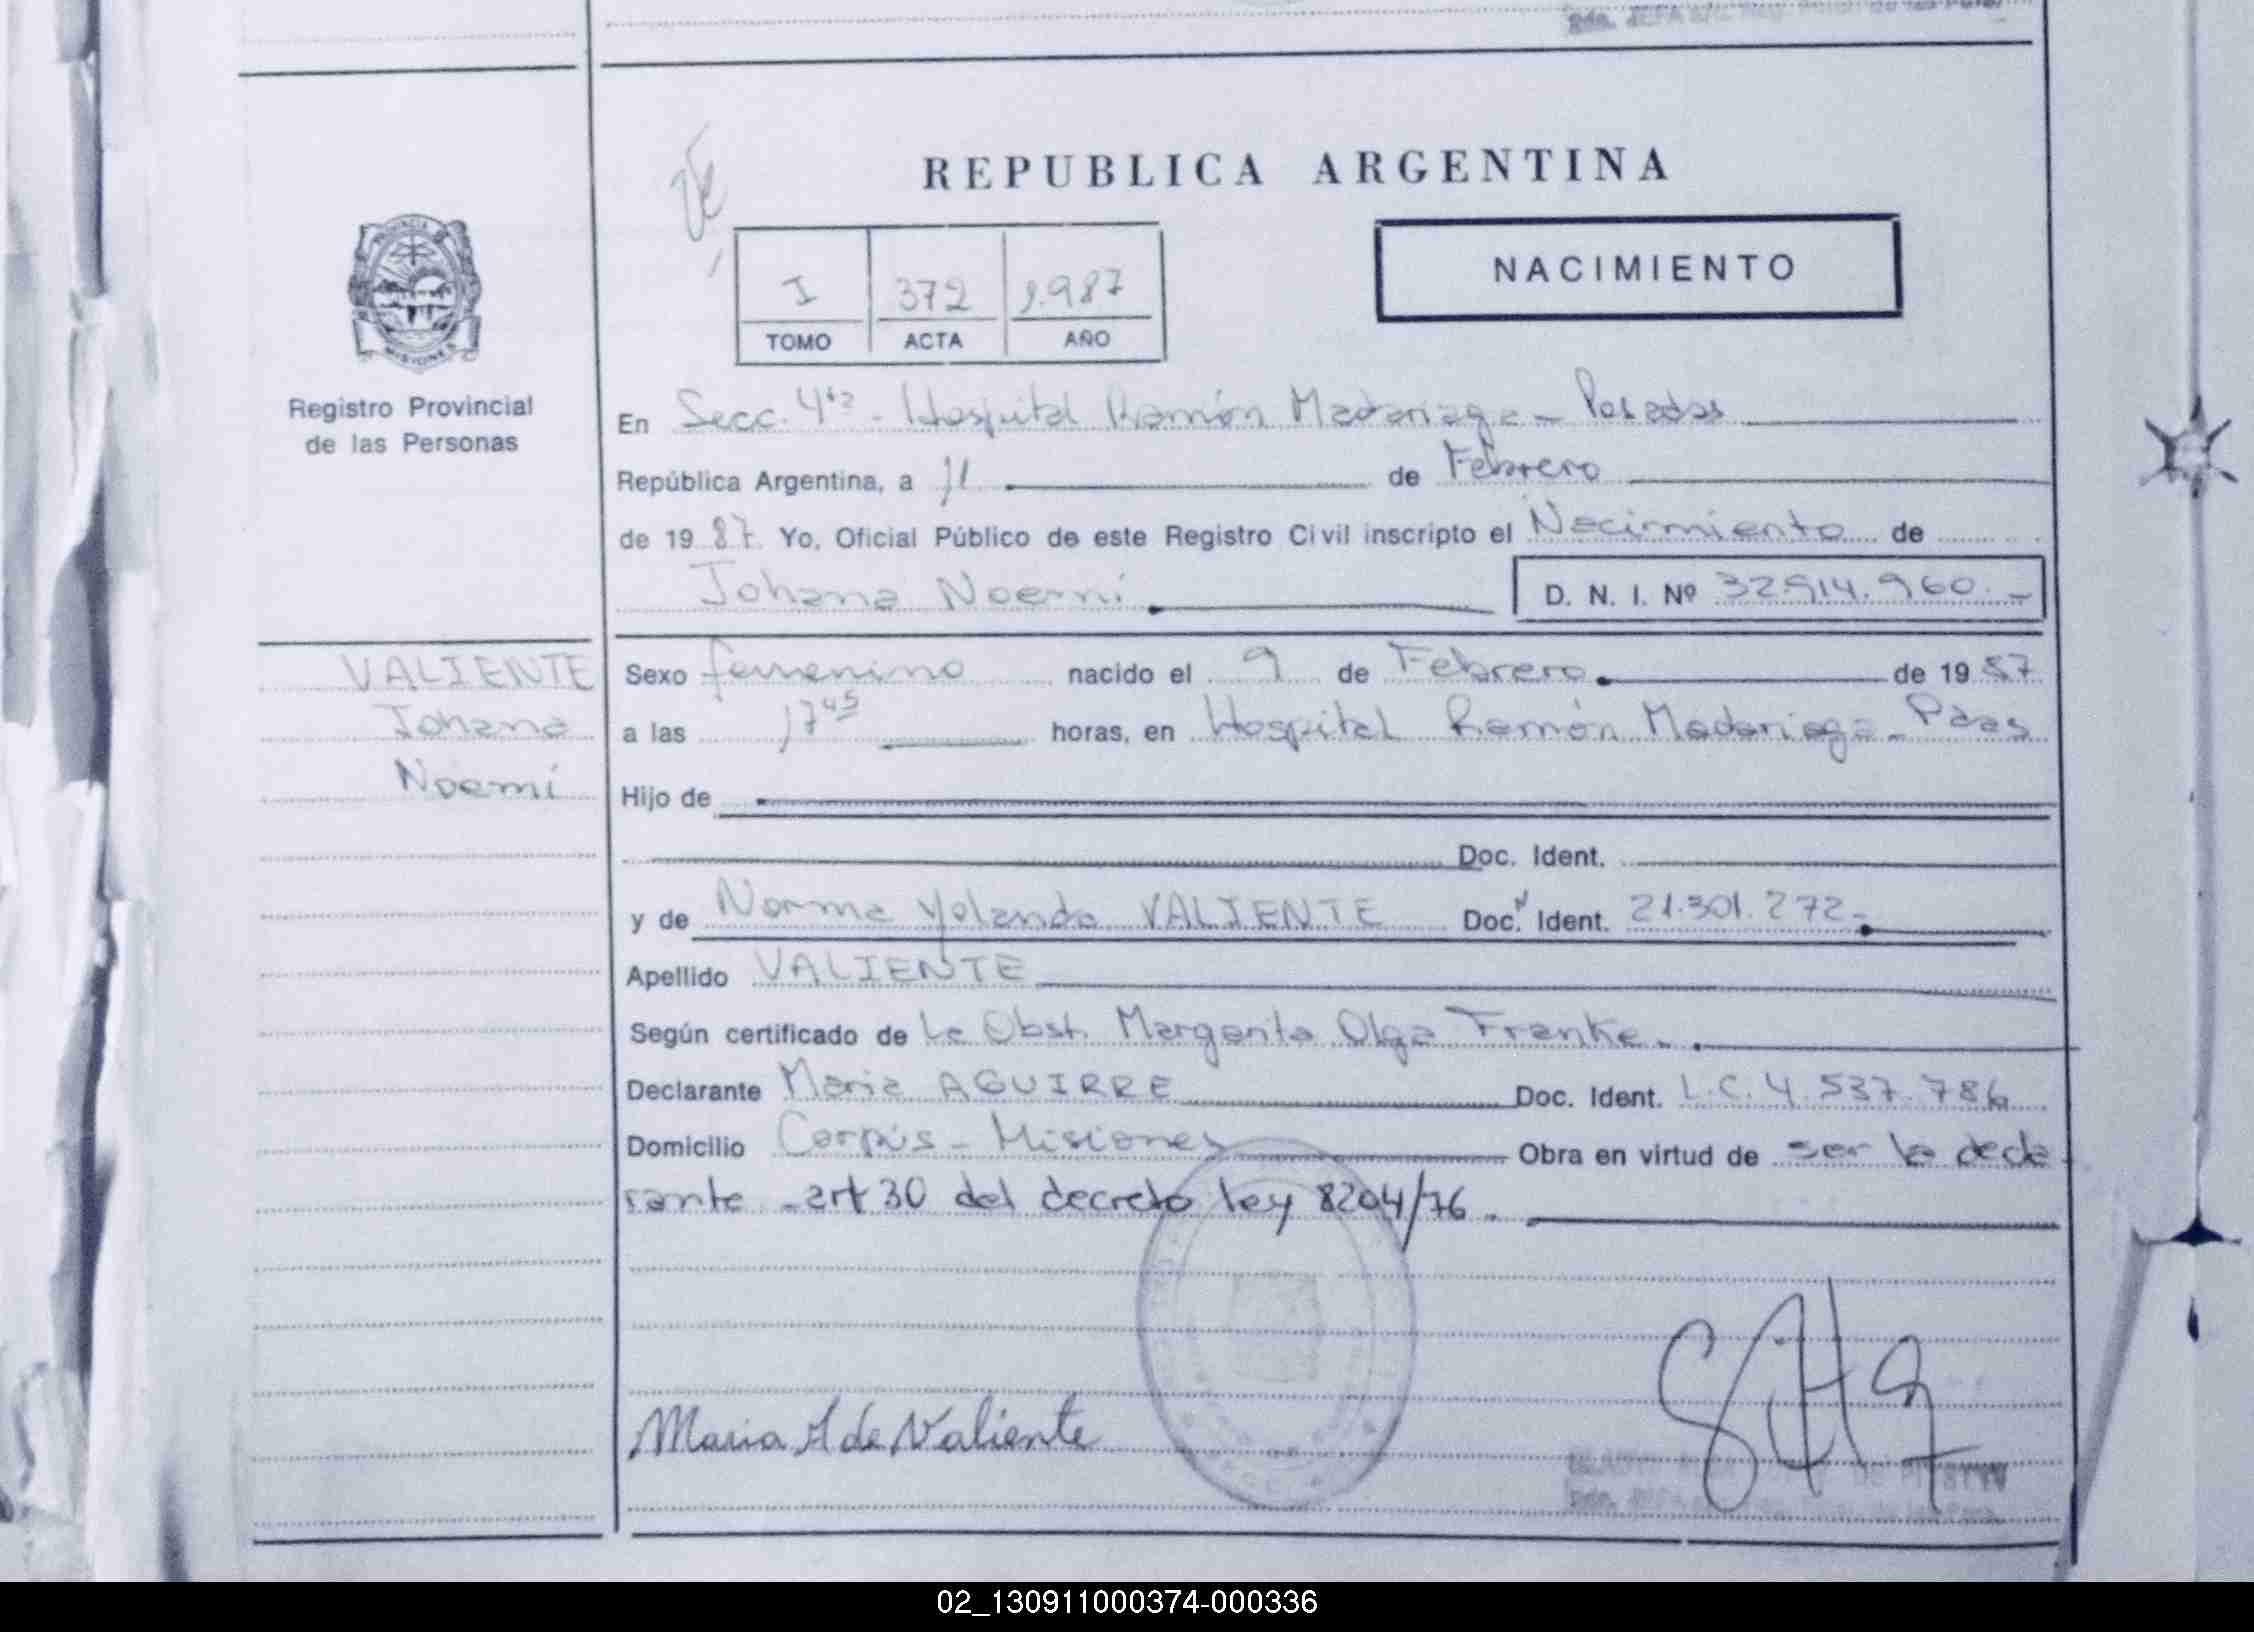 REPUBLICA ARGENTINA
I 372 1.987
TOMO ACTA AÑO
NACIMIENTO
PROVINCIA DE MISIONES
Registro Provincial
de las Personas
En Secc. 4ta - Hospital Ramón Madariaga - Posadas
República Argentina, a 11 de Febrero
de 1987 Yo, Oficial Público de este Registro Civil inscripto el Nacimiento de
Johana Noemi D. N. I. Nº 32.914.960.-
VALIENTE
Johana
Noemí
Sexo femenino nacido el 9 de Febrero de 1987
a las 17 45 horas, en Hospital Ramón Madariaga - Pdas
Hijo de
Doc. Ident.
y de Norma Yolanda VALIENTE Doc. N Ident. 21.301.272.-
Apellido VALIENTE
Según certificado de La Obst. Margarita Olga Franke.
Declarante Maria AGUIRRE Doc. Ident. L.C. 4.537.786
Domicilio Corpus - Misiones Obra en virtud de ser la decla
rante - art 30 del decreto ley 8204/76.
Maria A de Valiente
02_130911000374-000336